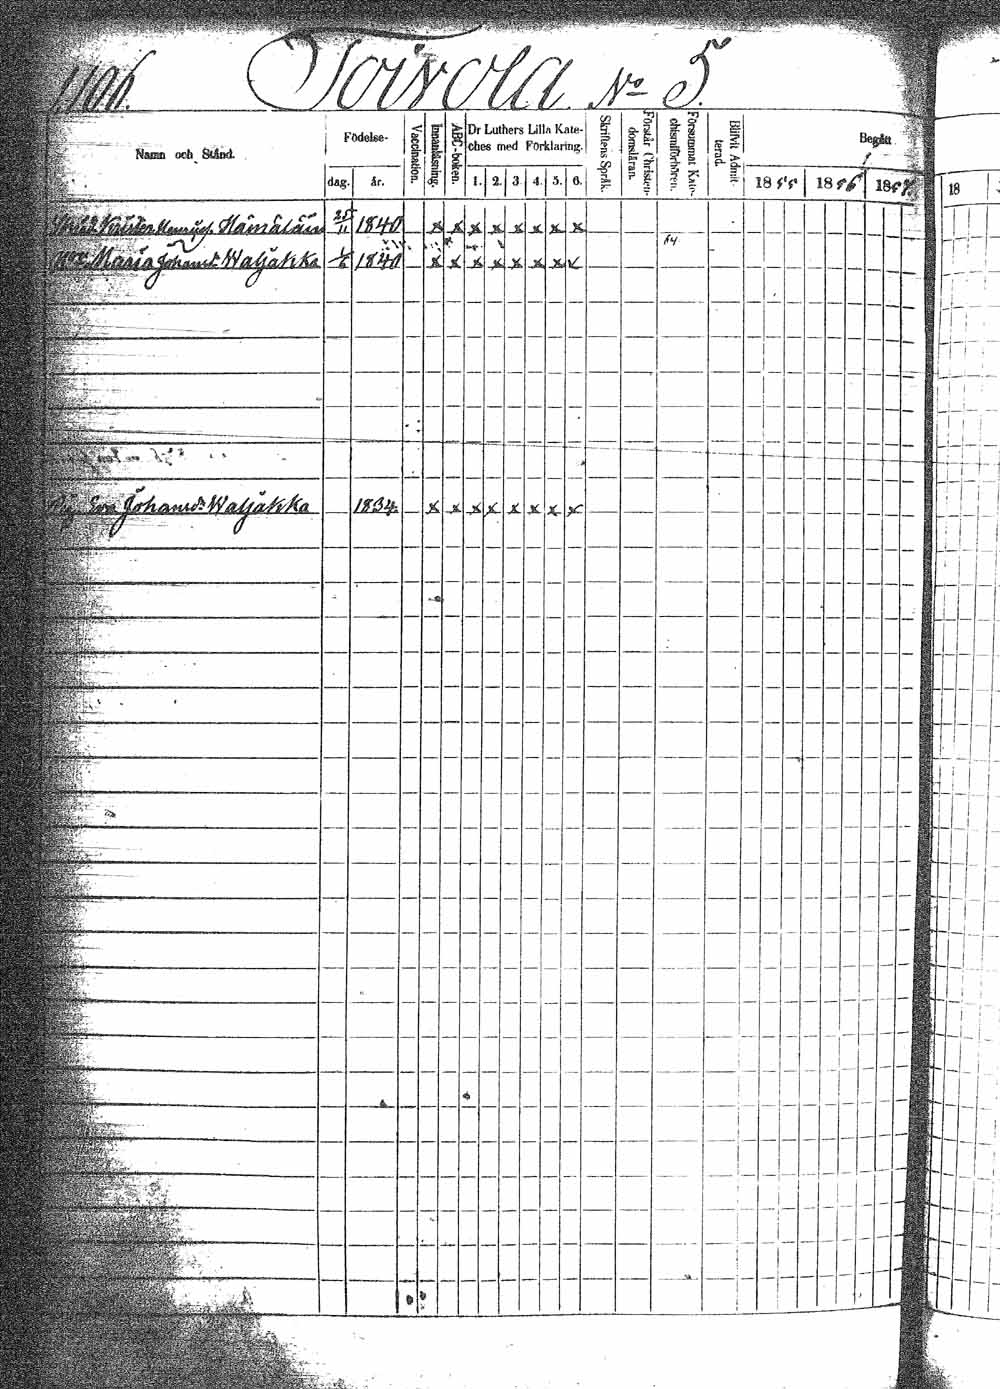 1106. Toivola No 5.
Namn och Stånd.
Födelse-
dag. år.
Vaccination.
Innanläsning.
ABC-boken.
Dr Luthers Lilla Kate-
ches med Förklaring.
1. 2. 3. 4. 5. 6.
Skriftens Språk.
Förstår Christen-
domsläran.
Försummat Kate-
chismiförhören.
Blifvit Admit-
terad.
Begått
1855 1856 1857 18
Hämäläin 25/11 1840 x x x x x x x x
Maria Johansd. Waljakka 1/6 1840 x x x x x x x x
Eva Johansd. Waljakka 1834 x x x x x x x x